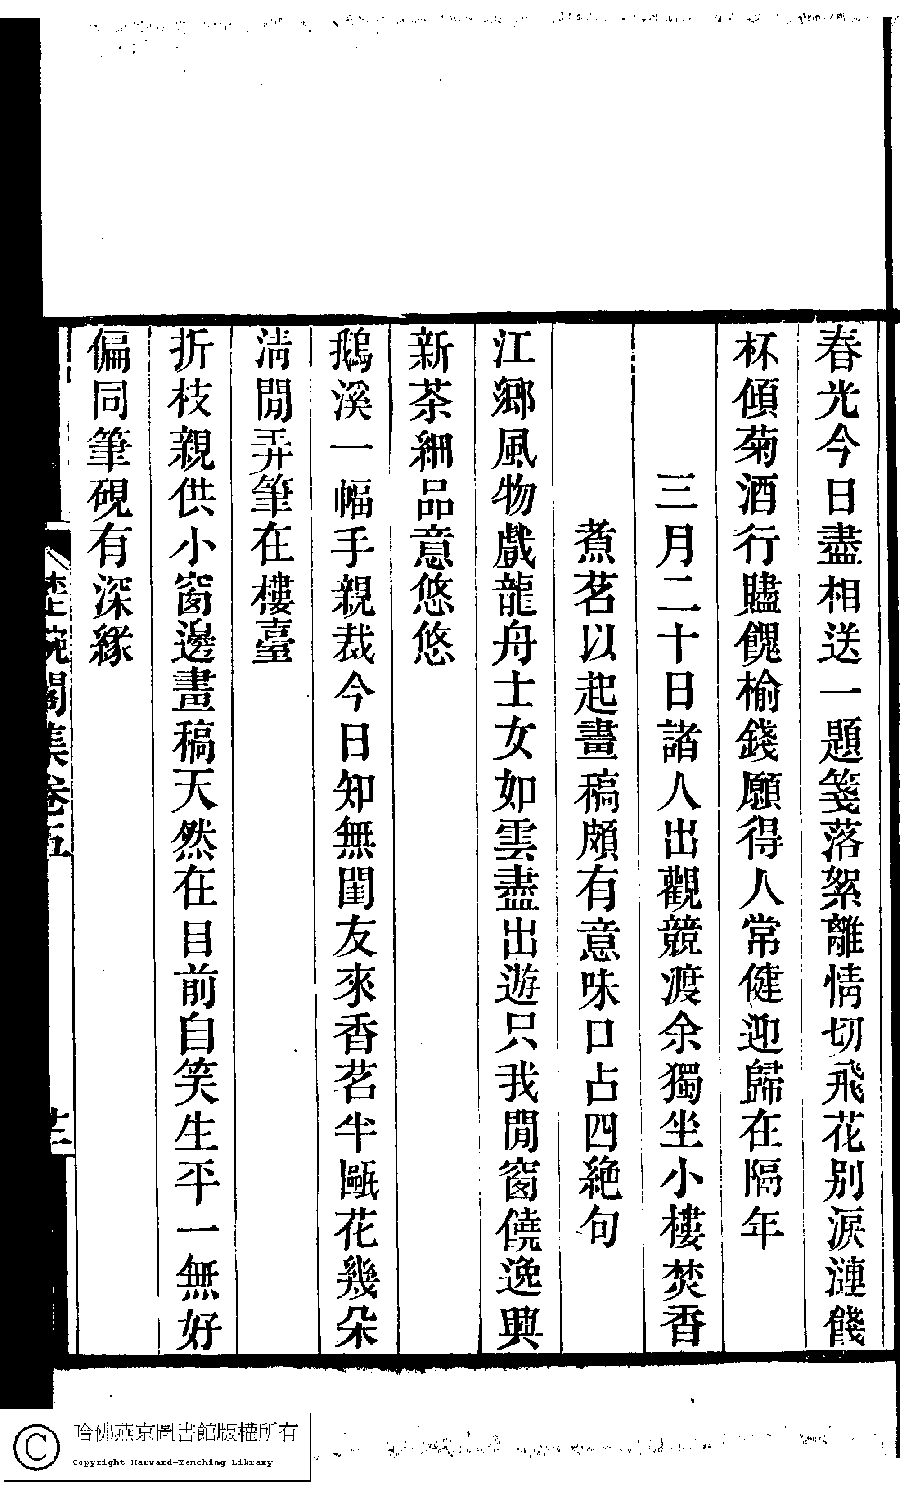 春光今日盡相送一題箋落絮離情切飛花別淚漣餞
杯傾菊酒行贐餽榆錢願得人常健迎歸在隔年
三月二十日諸人出觀競渡余獨坐小樓焚香
煮茗以起畫稿頗有意味口占四絕句
江鄉風物戲龍舟士女如雲盡出遊只我閒窗饒逸興
新茶細品意悠悠
鵝溪一幅手親裁今日知無閨友來香茗半甌花幾朵
淸閒弄筆在樓臺
折枝親供小窗邊畫稿天然在目前自笑生平一無好
偏同筆硯有深緣
閣集卷五
哈佛燕京圖書館版權所有
Copyright Harvard-Yenching Library